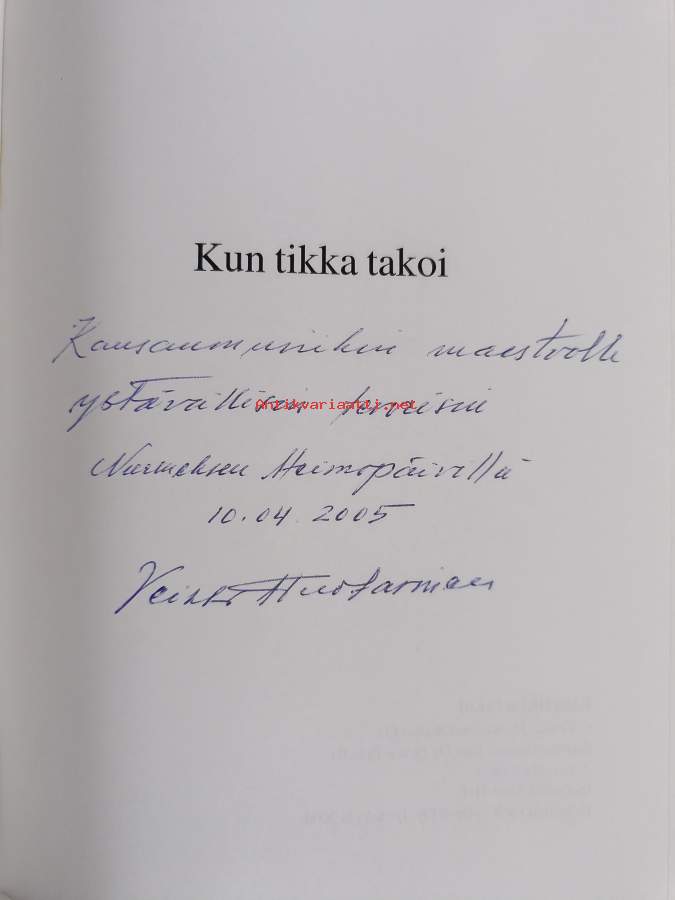 Kun tikka takoi
Kansanmusiikin maestrolle
ystävällisin terveisin
Antikvariaatti.net
Nurmeksen Heimopäivillä
10.04.2005
Veikko Huotarinen